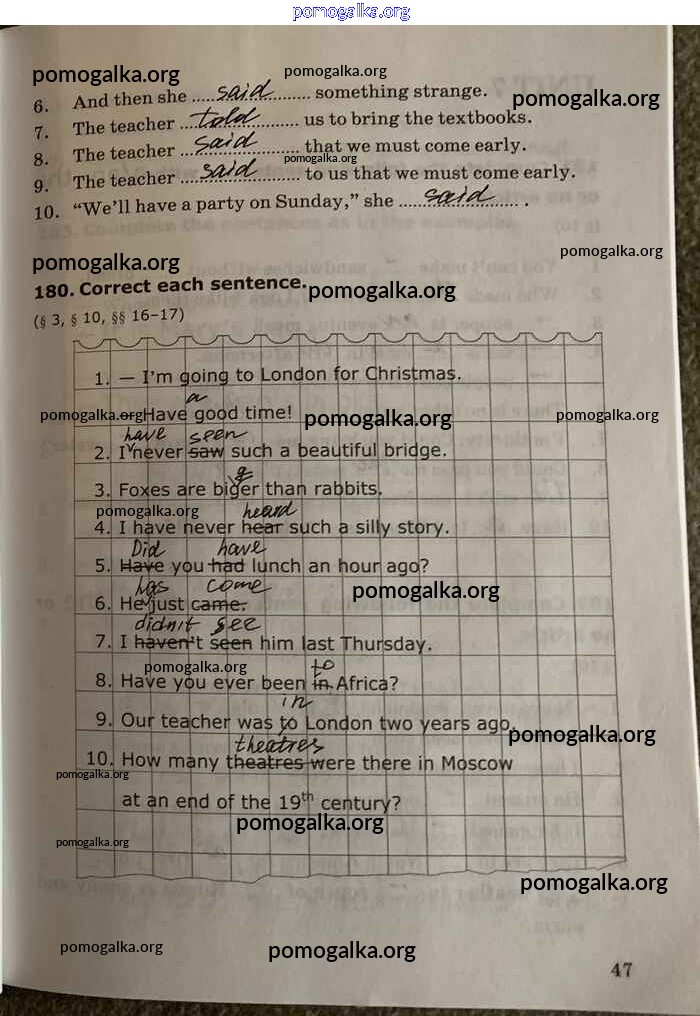 pomogalka.org
pomogalka.org pomogalka.org
6. And then she said something strange. pomogalka.org
7. The teacher told us to bring the textbooks.
8. The teacher said that we must come early.
pomogalka.org
9. The teacher said to us that we must come early.
10. "We'll have a party on Sunday," she said.
pomogalka.org pomogalka.org
180. Correct each sentence. pomogalka.org
(§ 3, § 10, §§ 16–17)
1. — I'm going to London for Christmas.
a
pomogalka.org Have good time! pomogalka.org pomogalka.org
have seen
2. I never saw such a beautiful bridge.
g
3. Foxes are biger than rabbits.
pomogalka.org heard
4. I have never hear such a silly story.
Did have
5. Have you had lunch an hour ago?
has come pomogalka.org
6. He just came.
didn't see
7. I haven't seen him last Thursday.
pomogalka.org to
8. Have you ever been in Africa?
in
9. Our teacher was to London two years ago. pomogalka.org
theatres
10. How many theatres were there in Moscow
pomogalka.org
at an end of the 19th century?
pomogalka.org
pomogalka.org
pomogalka.org
pomogalka.org pomogalka.org
47